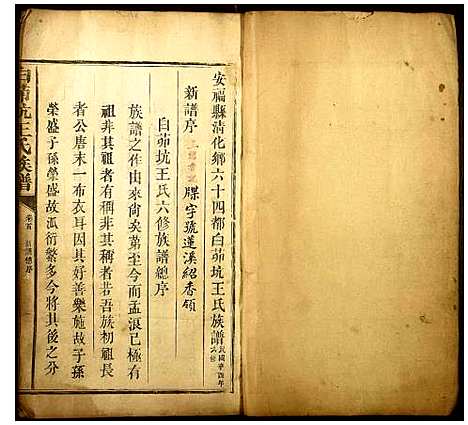 安福縣清化鄉六十四都白茆坑王氏族譜民國辛酉年六修
新譜序
牒字號蓮溪紹香領
白茆坑王氏六修族譜總序
族譜之作由來尚矣第至今而孟浪已極有
祖非其祖者有稱非其稱者若吾族初祖長
者公唐末一布衣耳因其好善樂施故子孫
榮盛子孫榮盛故派衍繁多今將其後之分
白茆坑王氏族譜
卷首
新譜總序